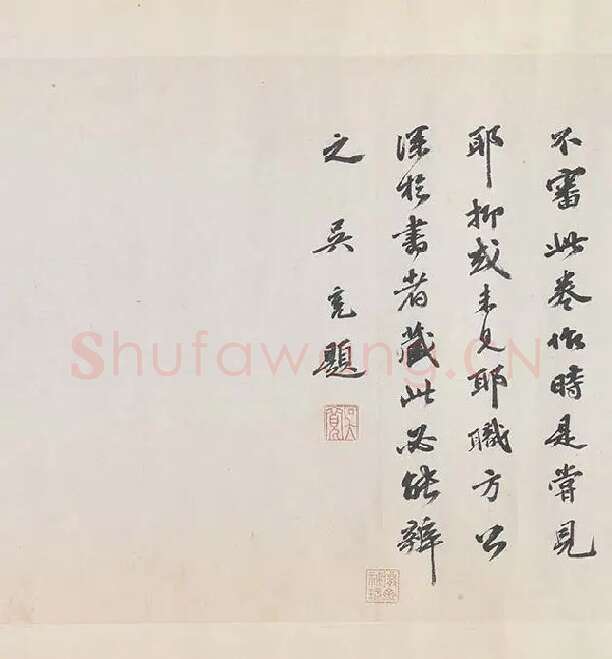 不審此卷作時是嘗見
耶抑或未見耶職方公
深於書者藏此必能辯
之 吳寬題
Shufawang.CN